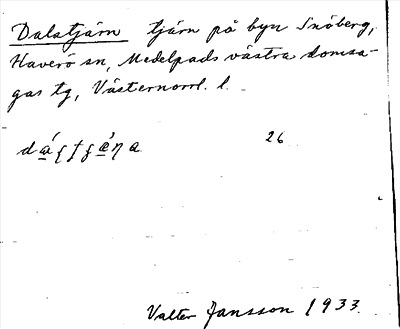 Dalatjärn tjärn på byn Snöberg,
Haverö sn, Medelpads västra domsa-
gas tg, Västernorrl. l.
26
Valter Jansson 1933.